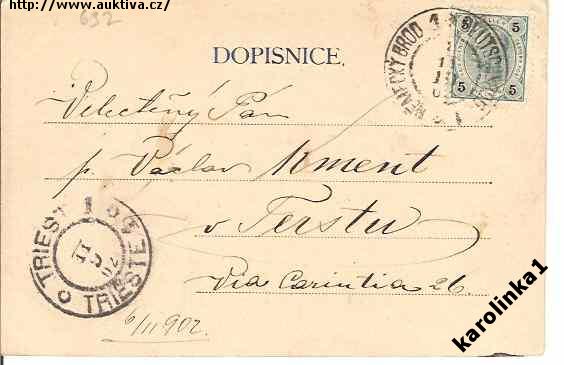 http://www.auktiva.cz/
692
DOPISNICE.
NĚMECKÝ BROD
5 5
5 5
Velectěný Pán
p. Václav Kment
v Terstu
Via Carintia 26.
TRIEST 1 TRIESTE
6/II 902.
karolinka1